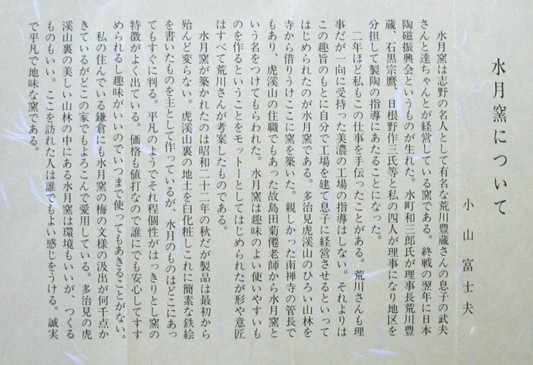 水月窯について
小山富士夫
水月窯は志野の名人として有名な荒川豊蔵さんの息子の武夫
さんと達ちゃんとが経営している窯である。終戦の翌年に日本
陶磁振興会というものが生れた。水町和三郎氏が理事長荒川豊
蔵、石黒宗麿、日根野作三氏等と私の四人が理事になり地区を
分担して製陶の指導にあたることになった。
二年ほど私もこの仕事を手伝ったことがある。荒川さんも理
事だが一向に受持った美濃の工場の指導はしない。それよりは
この趣旨のもとに自分で工場を建て息子に経営させるといって
はじめられたのが水月窯である。多治見虎渓山のひろい山林を
寺から借りうけここに窯を築いた。親しかった南禅寺の管長で
もあり、虎渓山の住職でもあった故島田菊僊老師から水月窯と
いう名をつけてもらわれた。水月窯は趣味のよい使いやすいも
のを作るということをモットーとしてはじめられたが形や意匠
はすべて荒川さんが考案したものである。
水月窯が築かれたのは昭和二十二年の秋だが製品は最初から
殆んど変らない。虎渓山裏の地土を白化粧しこれに簡素な鉄絵
を書いたものを主として作っているが、水月のものはどこにあっ
てもすぐに判る。平凡のようでそれ程個性がはっきりとし窯の
特徴がよく出ている。価格も値打なので誰にでも安心してすす
められるし趣味がいいのでいつまで使ってもあきることがない。
私の住んでいる鎌倉にも水月窯の梅の文様の汲出が何千点か
きているがどこの家でもよろこんで愛用している。多治見の虎
渓山裏の美しい山林の中にある水月窯は環境もいいが、つくる
ものもいい。ここを訪れた人は誰でもよい感じをうける。誠実
で平凡で地味な窯である。